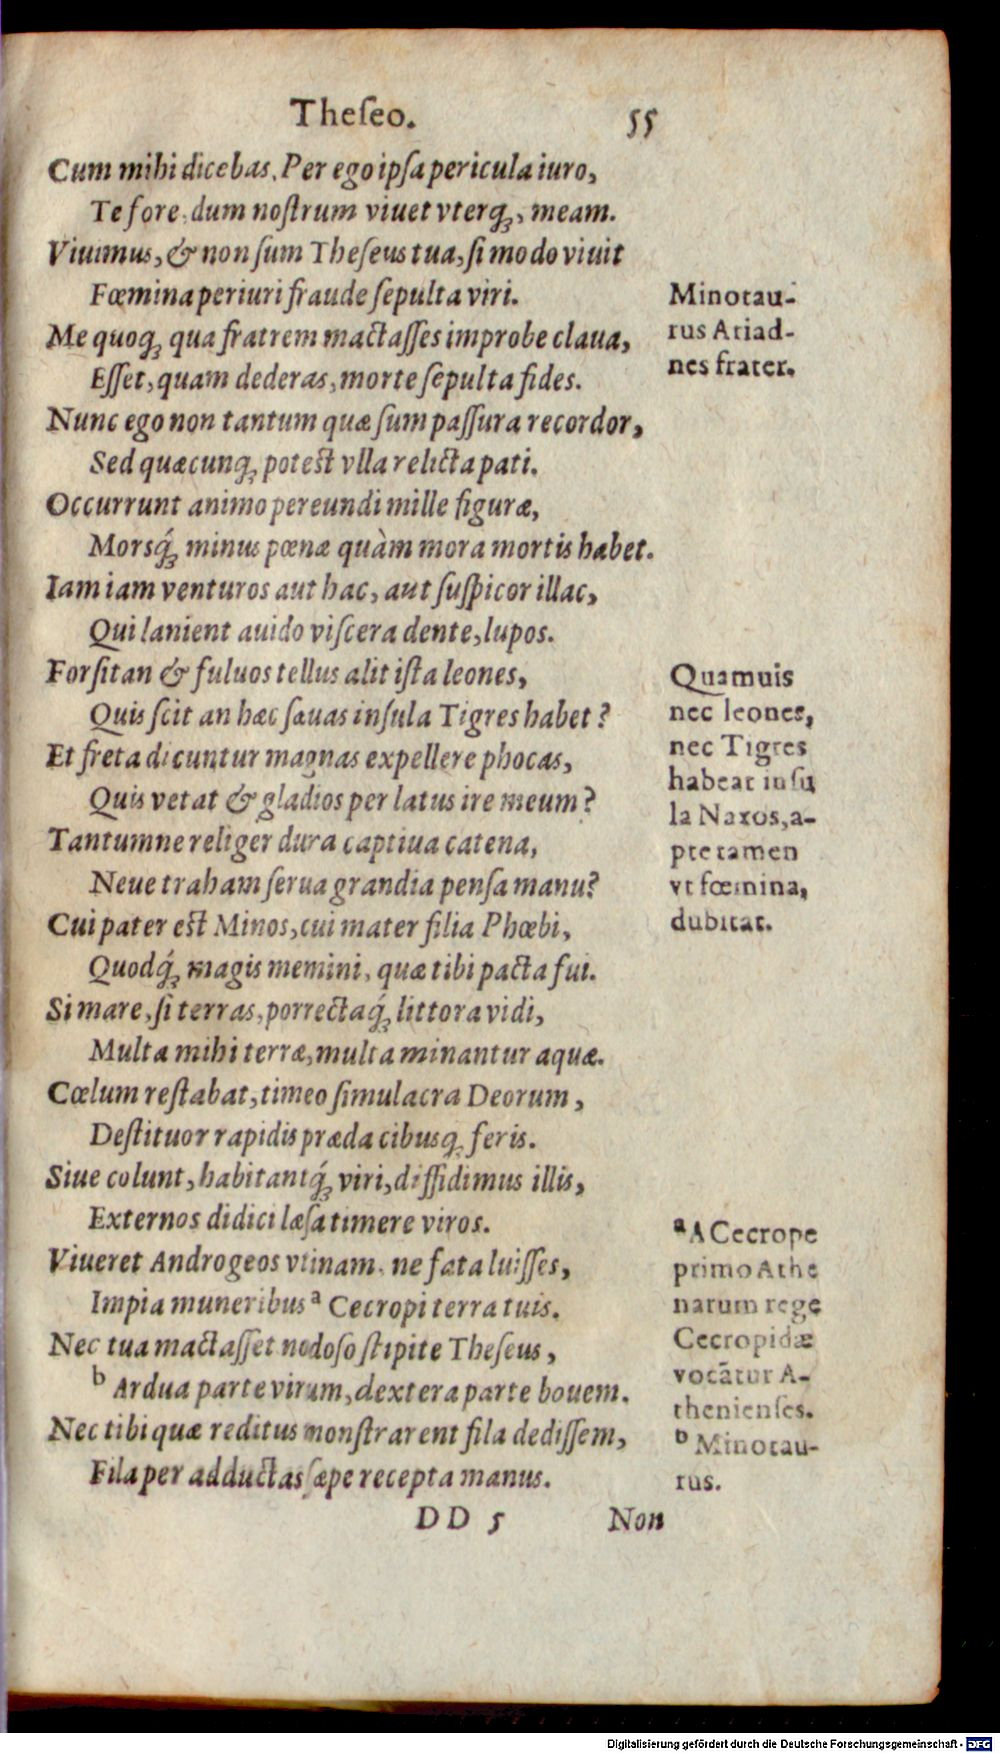 Theſeo. 55
Cum mihi dicebas. Per ego ipſa pericula iuro,
Te fore, dum noſtrum viuet vterq́;, meam.
Viuimus, & non ſum Theſeus tua, ſi modo viuit
Fœmina periuri fraude ſepulta viri.
Me quoq; qua fratrem mactaſſes improbe claua,
Eſſet, quam dederas, morte ſepulta fides.
Nunc ego non tantum quæ ſum paſſura recordor,
Sed quæcunq; poteſt vlla relicta pati.
Occurrunt animo pereundi mille figuræ,
Morsq́; minus pœnæ quàm mora mortis habet.
Iam iam venturos aut hac, aut ſuſpicor illac,
Qui lanient auido viſcera dente, lupos.
Forſitan & fuluos tellus alit iſta leones,
Quis ſcit an hæc ſæuas inſula Tigres habet?
Et freta dicuntur magnas expellere phocas,
Quis vetat & gladios per latus ire meum?
Tantumne religer dura captiua catena,
Neue traham ſerua grandia penſa manu?
Cui pater eſt Minos, cui mater filia Phœbi,
Quodq́; magis memini, quæ tibi pacta fui.
Si mare, ſi terras, porrectaq́; littora vidi,
Multa mihi terræ, multa minantur aquæ.
Cœlum reſtabat, timeo ſimulacra Deorum,
Deſtituor rapidis præda cibusq; feris.
Siue colunt, habitantq́; viri, diffidimus illis,
Externos didici læſa timere viros.
Viueret Androgeos vtinam, ne fata luiſſes,
Impia muneribus ᵃ Cecropi terra tuis.
Nec tua mactaſſet nodoſo ſtipite Theſeus,
ᵇ Ardua parte virum, dextera parte bouem.
Nec tibi quæ reditus monſtrarent fila dediſſem,
Fila per adductas ſæpe recepta manus.
DD 5 Non
Minotau-
rus Ariad-
nes frater.
Quamuis
nec leones,
nec Tigres
habeat inſu
la Naxos, a-
pte tamen
vt fœmina,
dubitat.
ᵃ A Cecrope
primo Athe
narum rege
Cecropidæ
vocãtur A-
thenienſes.
ᵇ Minotau-
rus.
Digitalisierung gefördert durch die Deutsche Forschungsgemeinschaft - DFG